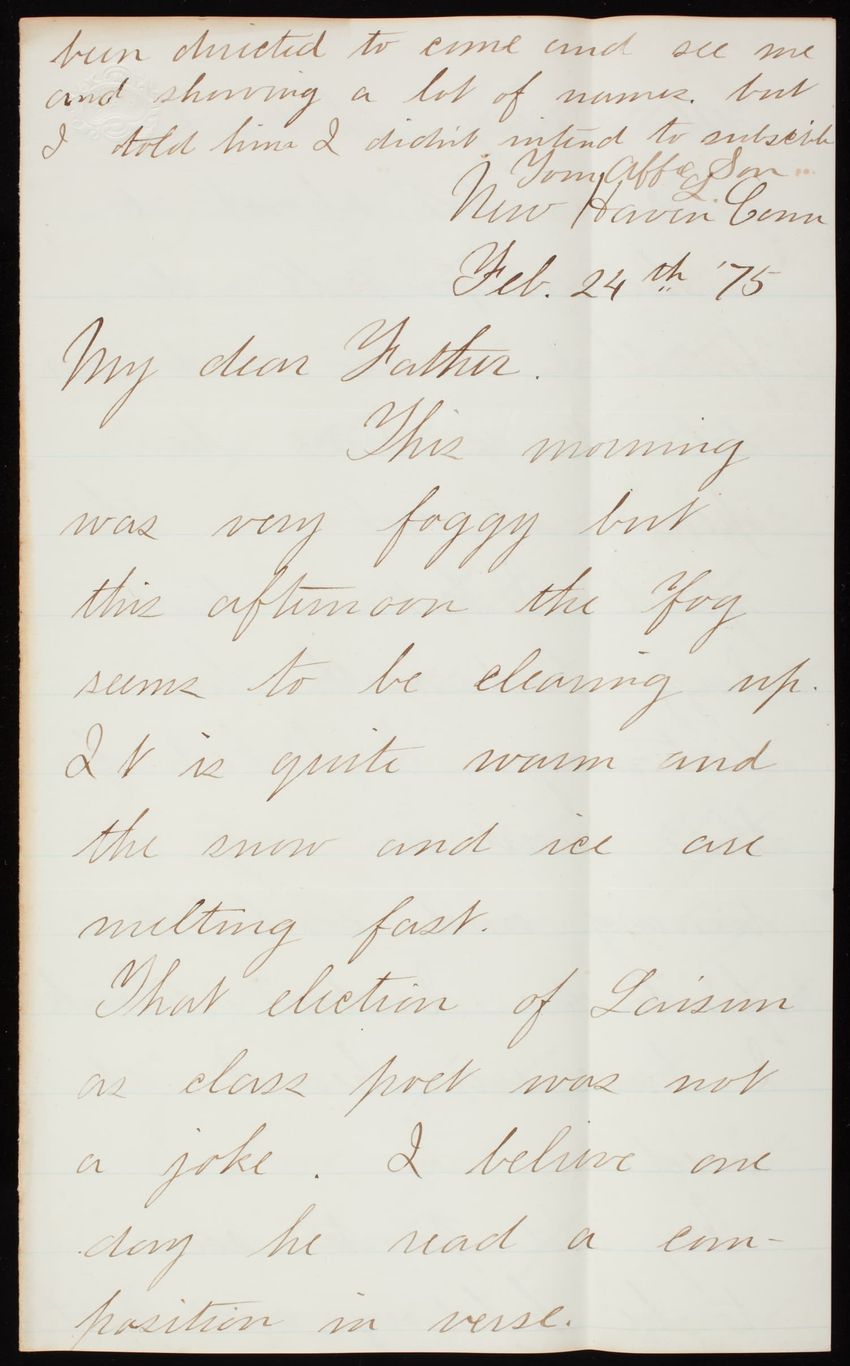 been directed to come and see me
and showing a lot of names. but
I told him I didn't intend to subscrib
Your Aff. Son
New Haven Conn
Feb. 24th '75
My dear Father.
This morning
was very foggy but
this afternoon the Fog
seems to be clearing up.
It is quite warm and
the snow and ice are
melting fast.
That election of
as class poet was not
a joke. I believe one
day he read a com-
position in verse.